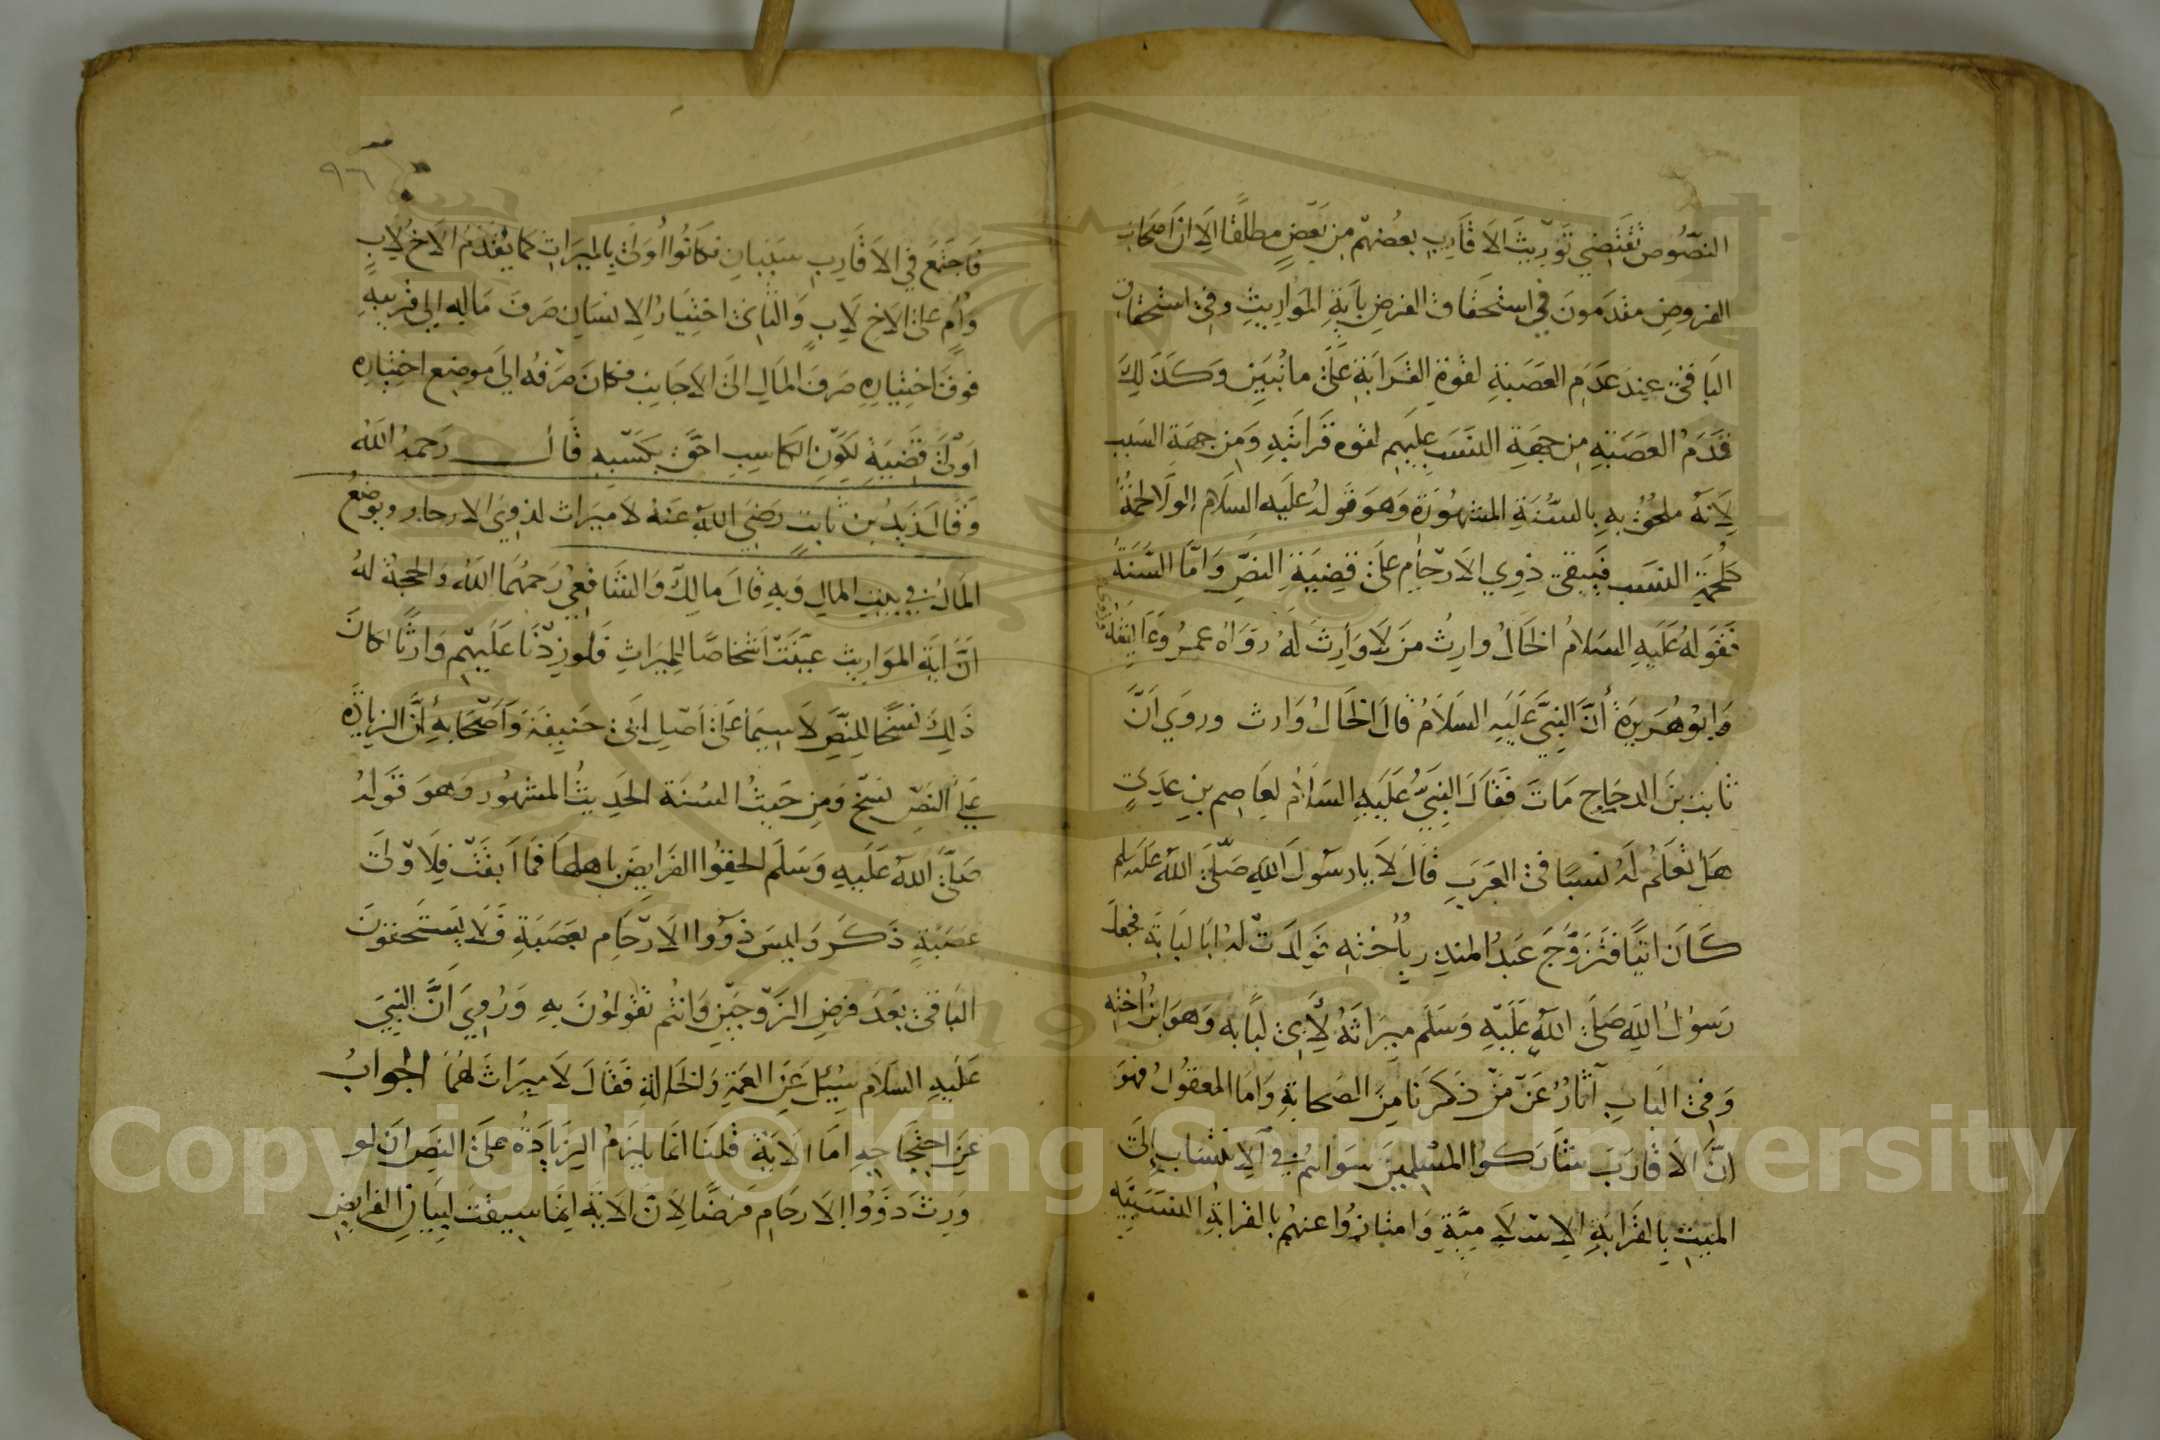 النصوص تقتضي توريث الاقارب بعضهم من بعض مطلقا الا ان اصحاب
الفروض مقدمون في استحقاق الفرض باية المواريث وفي استحقاق
الباقي عند عدم العصبة لقوة القرابة على ما نبين وكذلك
قدم العصبة من جهة النسب عليهم لقوه قرابته ومن جهة السبب
لانه ملحق به بالسنة المشهورة وهو قوله عليه السلام الولا لحمة
كلحمة النسب فيبقى ذوي الارحام على قضية النص واما السنة
فقوله عليه السلام الخال وارث من لا وارث له رواه عمر وعايشه
وابو هريرة أن النبي عليه السلام قال الخال وارث وروي ان
ثابت بن الدحاح مات فقال النبي عليه السلام لعاصم بن عدي
هل تعلم له نسبا في العرب قال لا يا رسول الله صلى الله عليه سلم
كان اتيا فتزوج عبد المنذر بأخته فولدت له ابا لبابة فجعل
رسول الله صلى الله عليه وسلم ميراثه لأبي لبابه وهو ابن اخته
وفي الباب آثار عن من ذكرنا من الصحابة واما المعقول فهو
ان الاقارب شاركوا المسلمين سواهم في الانتساب إلى
الميت بالقرابة الاسلامية وامتازوا عنهم بالقرابة النسبيه
٩٦
فاجتمع في الاقارب سببان فكانوا اولى بالميراث كما يقدم الاخ لاب
وام على الاخ لاب والثاني اختيار الانسان صرف ماله الى قريبه
فوق اختياره صرف المال الى الاجانب فكان صرفه الى موضع اختياره
اولى قضية لكون الكاسب احق بكسبه قال رحمه الله
وقال زيد بن ثابت رضي الله عنه لا ميراث لذوي الارحام ويوضع
المال في بيت المال وبه قال مالك والشافعي رحمهما الله والحجة له
ان اية المواريث عينت اشخاصا للميراث فلو زدنا عليهم وارثا كان
ذلك نسخا للنص لا سيما على اصل ابي حنيفة واصحابه أن الزيادة
على النص نسخ ومن حيث السنة الحديث المشهور وهو قوله
صلى الله عليه وسلم الحقوا الفرايض باهلها فما ابقت فلاولى
عصبة ذكر وليس ذووا الارحام بعصبة فلا يستحقون
الباقي بعد فرض الزوجين وانتم تقولون به وروي ان النبي
عليه السلام سئل عن العمة والخالة فقال لا ميراث لهما الجواب
عن احتجاجه اما الاية قلنا انما يلزم الزيادة على النص ان لو
ورث ذووا الارحام فرضا لان الاية انما سيقت لبيان الفرايض
Copyright © King Saud University